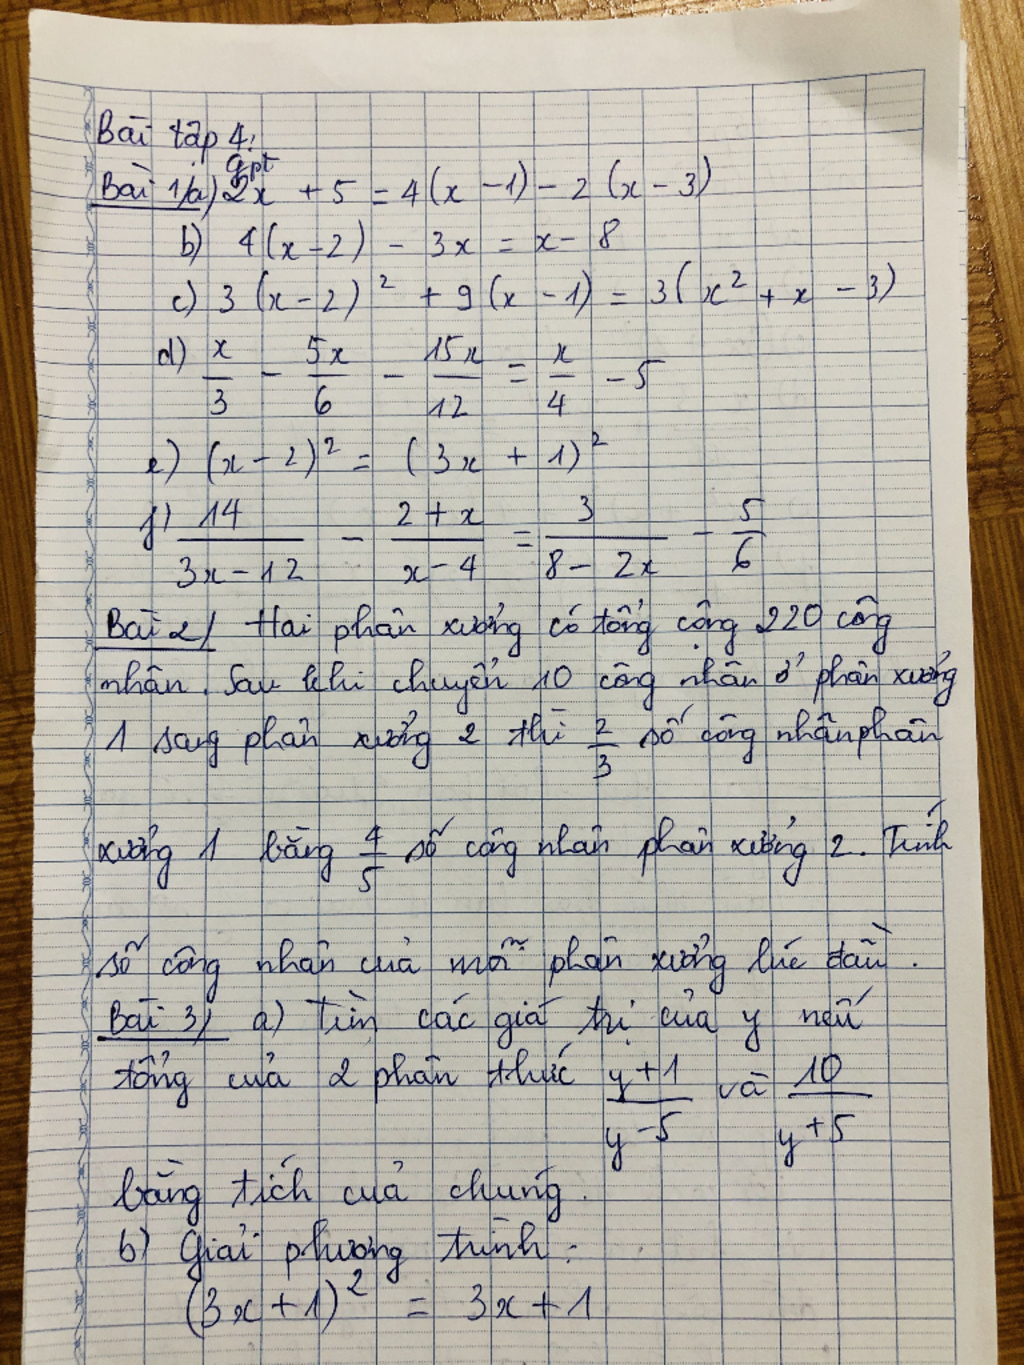 Bài tập 4:
gpt
Bài 1/a) 2x + 5 = 4(x - 1) - 2(x - 3)
b) 4(x - 2) - 3x = x - 8
c) 3(x - 2)² + 9(x - 1) = 3(x² + x - 3)
d) x/3 - 5x/6 - 15x/12 = x/4 - 5
e) (x - 2)² = (3x + 1)²
f) 14/(3x - 12) - (2 + x)/(x - 4) = 3/(8 - 2x) - 5/6
Bài 2/ Hai phân xưởng có tổng cộng 220 công
nhân. Sau khi chuyển 10 công nhân ở phân xưởng
1 sang phân xưởng 2 thì 2/3 số công nhân phân
xưởng 1 bằng 4/5 số công nhân phân xưởng 2. Tính
số công nhân của mỗi phân xưởng lúc đầu.
Bài 3/ a) Tìm các giá trị của y nếu
tổng của 2 phân thức (y + 1)/(y - 5) và 10/(y + 5)
bằng tích của chúng.
b) Giải phương trình:
(3x + 1)² = 3x + 1